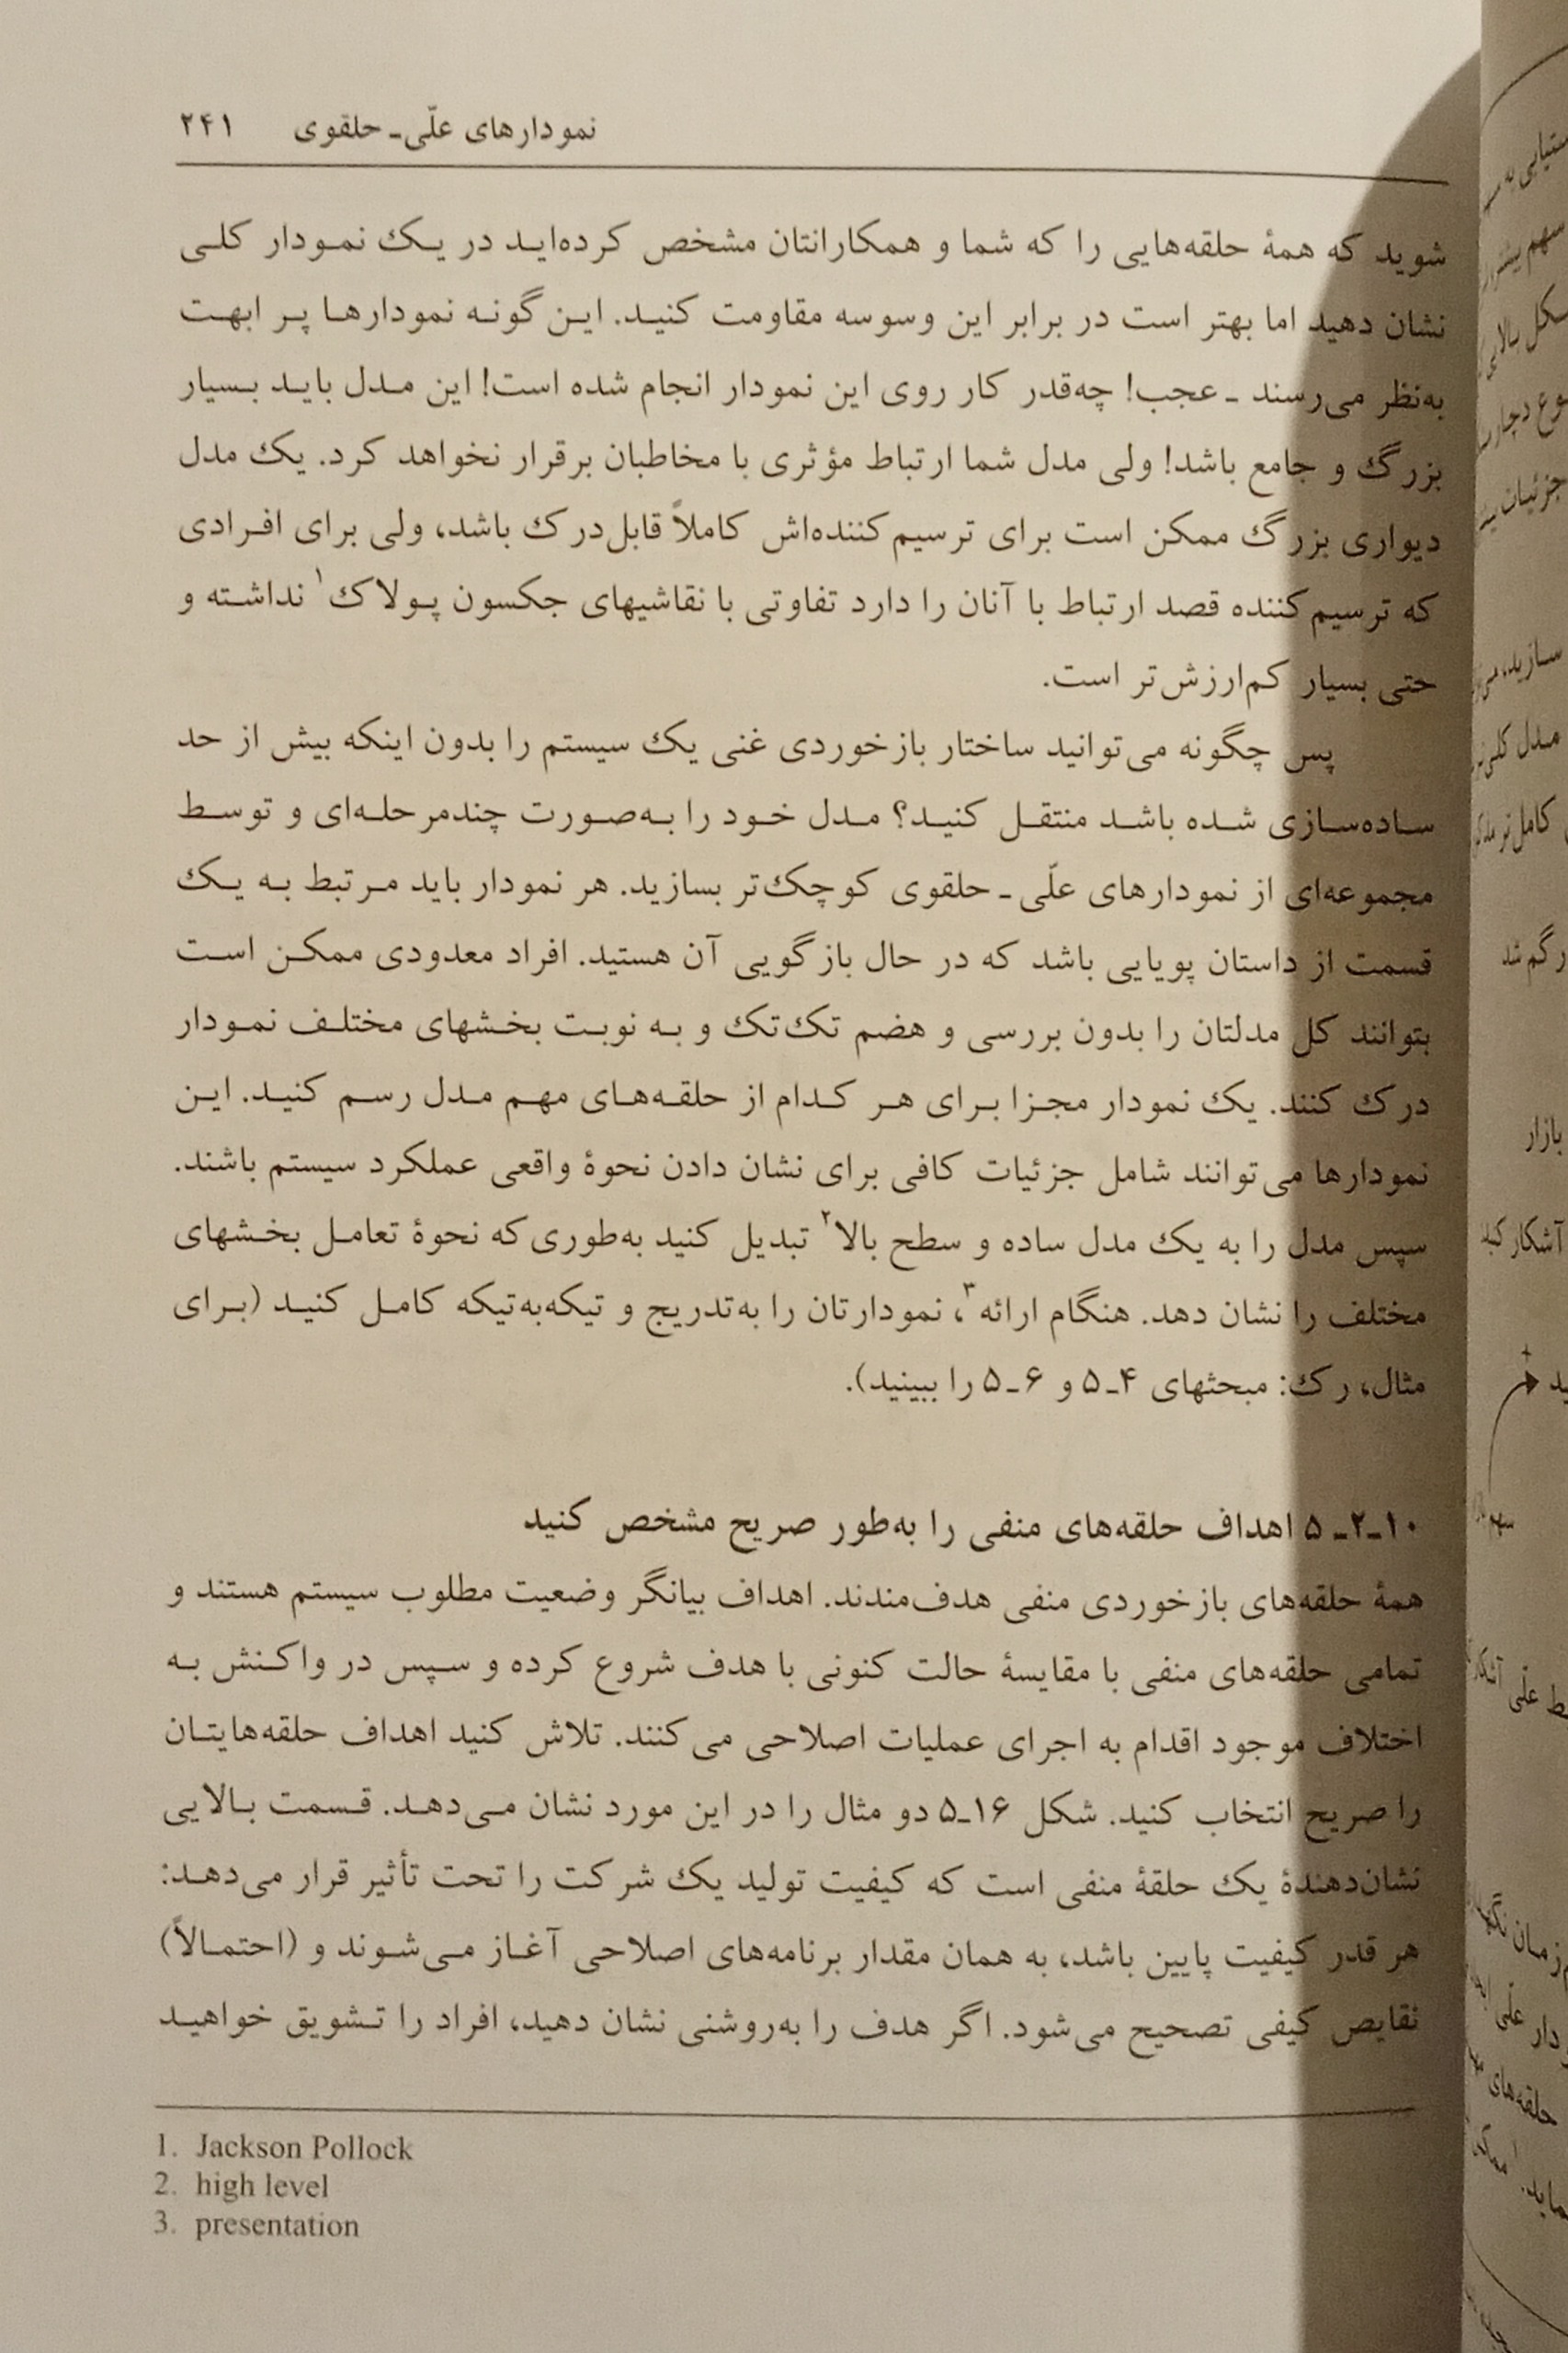 نمودارهای علّی_ حلقوی ۲۴۱
شوید که همهٔ حلقه‌هایی را که شما و همکارانتان مشخص کرده‌اید در یک نمودار کلی
نشان دهید اما بهتر است در برابر این وسوسه مقاومت کنید. این گونه نمودارها پر ابهت
به‌نظر می‌رسند _ عجب! چه‌قدر کار روی این نمودار انجام شده است! این مدل باید بسیار
بزرگ و جامع باشد! ولی مدل شما ارتباط مؤثری با مخاطبان برقرار نخواهد کرد. یک مدل
دیواری بزرگ ممکن است برای ترسیم‌کننده‌اش کاملاً قابل‌درک باشد، ولی برای افرادی
که ترسیم‌کننده قصد ارتباط با آنان را دارد تفاوتی با نقاشیهای جکسون پولاک۱ نداشته و
حتی بسیار کم‌ارزش‌تر است.
پس چگونه می‌توانید ساختار بازخوردی غنی یک سیستم را بدون اینکه بیش از حد
ساده‌سازی شده باشد منتقل کنید؟ مدل خود را به‌صورت چندمرحله‌ای و توسط
مجموعه‌ای از نمودارهای علّی _ حلقوی کوچک‌تر بسازید. هر نمودار باید مرتبط به یک
قسمت از داستان پویایی باشد که در حال بازگویی آن هستید. افراد معدودی ممکن است
بتوانند کل مدلتان را بدون بررسی و هضم تک‌تک و به نوبت بخشهای مختلف نمودار
درک کنند. یک نمودار مجزا برای هر کدام از حلقه‌های مهم مدل رسم کنید. این
نمودارها می‌توانند شامل جزئیات کافی برای نشان دادن نحوهٔ واقعی عملکرد سیستم باشند.
سپس مدل را به یک مدل ساده و سطح بالا۲ تبدیل کنید به‌طوری‌که نحوهٔ تعامل بخشهای
مختلف را نشان دهد. هنگام ارائه۳، نمودارتان را به‌تدریج و تیکه‌به‌تیکه کامل کنید (برای
مثال، رک: مبحثهای ۴_۵ و ۶_۵ را ببینید).
۱۰_۲_ ۵ اهداف حلقه‌های منفی را به‌طور صریح مشخص کنید
همهٔ حلقه‌های بازخوردی منفی هدف‌مندند. اهداف بیانگر وضعیت مطلوب سیستم هستند و
تمامی حلقه‌های منفی با مقایسهٔ حالت کنونی با هدف شروع کرده و سپس در واکنش به
اختلاف موجود اقدام به اجرای عملیات اصلاحی می‌کنند. تلاش کنید اهداف حلقه‌هایتان
را صریح انتخاب کنید. شکل ۱۶_۵ دو مثال را در این مورد نشان می‌دهد. قسمت بالایی
نشان‌دهندهٔ یک حلقهٔ منفی است که کیفیت تولید یک شرکت را تحت تأثیر قرار می‌دهد:
هر قدر کیفیت پایین باشد، به همان مقدار برنامه‌های اصلاحی آغاز می‌شوند و (احتمالاً)
نقایص کیفی تصحیح می‌شود. اگر هدف را به‌روشنی نشان دهید، افراد را تشویق خواهید
1. Jackson Pollock
2. high level
3. presentation